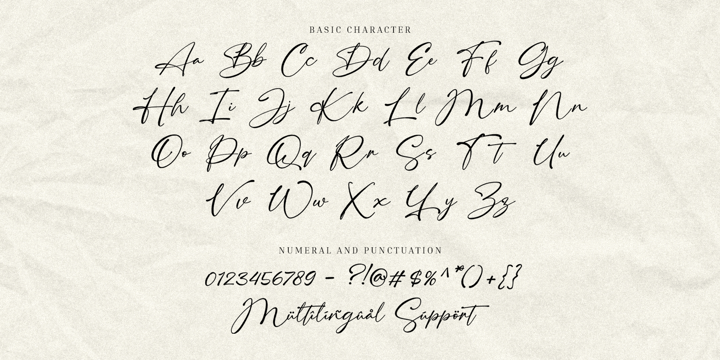 BASIC CHARACTER
Aa Bb Cc Dd Ee Ff Gg
Hh Ii Jj Kk Ll Mm Nn
Oo Pp Qq Rr Ss Tt Uu
Vv Ww Xx Yy Zz
NUMERAL AND PUNCTUATION
0123456789 - ?!@#$%^*()+{}
Mültilingúål Suppört